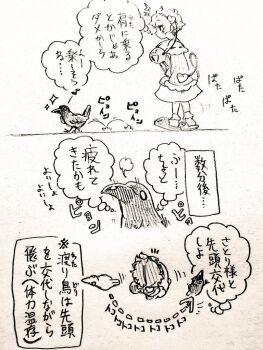 肩に乗る
とかじゃあ
ダメかしら
楽しそ
お…
ピョン
ピョン
ぱた
ぱた
ぱた
数分後…
ふー…
ちょっと
疲れて
きたかも
よいしょ
よいしょ
ピョン
ピョン
さとり様と
先頭交代
しよ
トトトトトトト
※渡り鳥は先頭
を交代しながら
飛ぶ(体力温存)